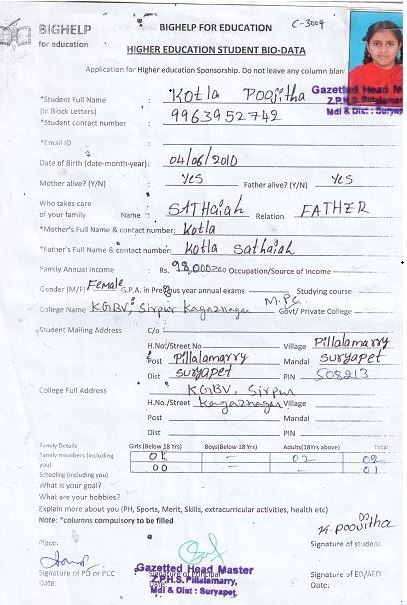 BIGHELP
for education
BIGHELP FOR EDUCATION
C-3004
HIGHER EDUCATION STUDENT BIO-DATA
Application for Higher education Sponsorship. Do not leave any column blan
*Student Full Name : Kotla Poojitha
(In Block Letters)
Gazetted Head Ma
Z.P.H.S. Pillalamar
Mdl & Dist : Suryapet
*Student contact number : 9963952742
*Email ID :
Date of Birth (date-month-year): 04/06/2010
Mother alive? (Y/N) : Yes Father alive? (Y/N) Yes
Who takes care
of your family Name : SATHaiah Relation FATHER
*Mother's Full Name & contact number: Kotla
*Father's Full Name & contact number: Kotla Sathaiah
Family Annual Income : Rs. 98,000=00 Occupation/Source of Income
Gender (M/F) Female G.P.A. in Previous year annual exams Studying course M.P.C.
College Name KGBV, Sirpur Kagaznagar Govt/ Private College
Student Mailing Address C/o
H.No/Street No Village Pillalamarry
Post Pillalamarry Mandal Suryapet
Dist Suryapet PIN 508213
College Full Address : KGBV, Sirpur
H.No./Street Kagaznagar Village
Post Mandal
Dist PIN
Family Details Girls (Below 18 Yrs) Boys(Below 18 Yrs) Adults(18Yrs above) Total
Family members (including you) - 02
Schooling (including you) 00 - 01
What is your goal?
What are your hobbies?
Explain more about you (PH, Sports, Merit, Skills, extracurricular activities, health etc)
Note: *columns compulsory to be filled
K. Poojitha
Place: Signature of student
Signature of PD or PCC Signature of Principal Signature of ED/AED
Gazetted Head Master
Z.P.H.S. Pillalamarry,
Mdl & Dist : Suryapet.
Date: Date: